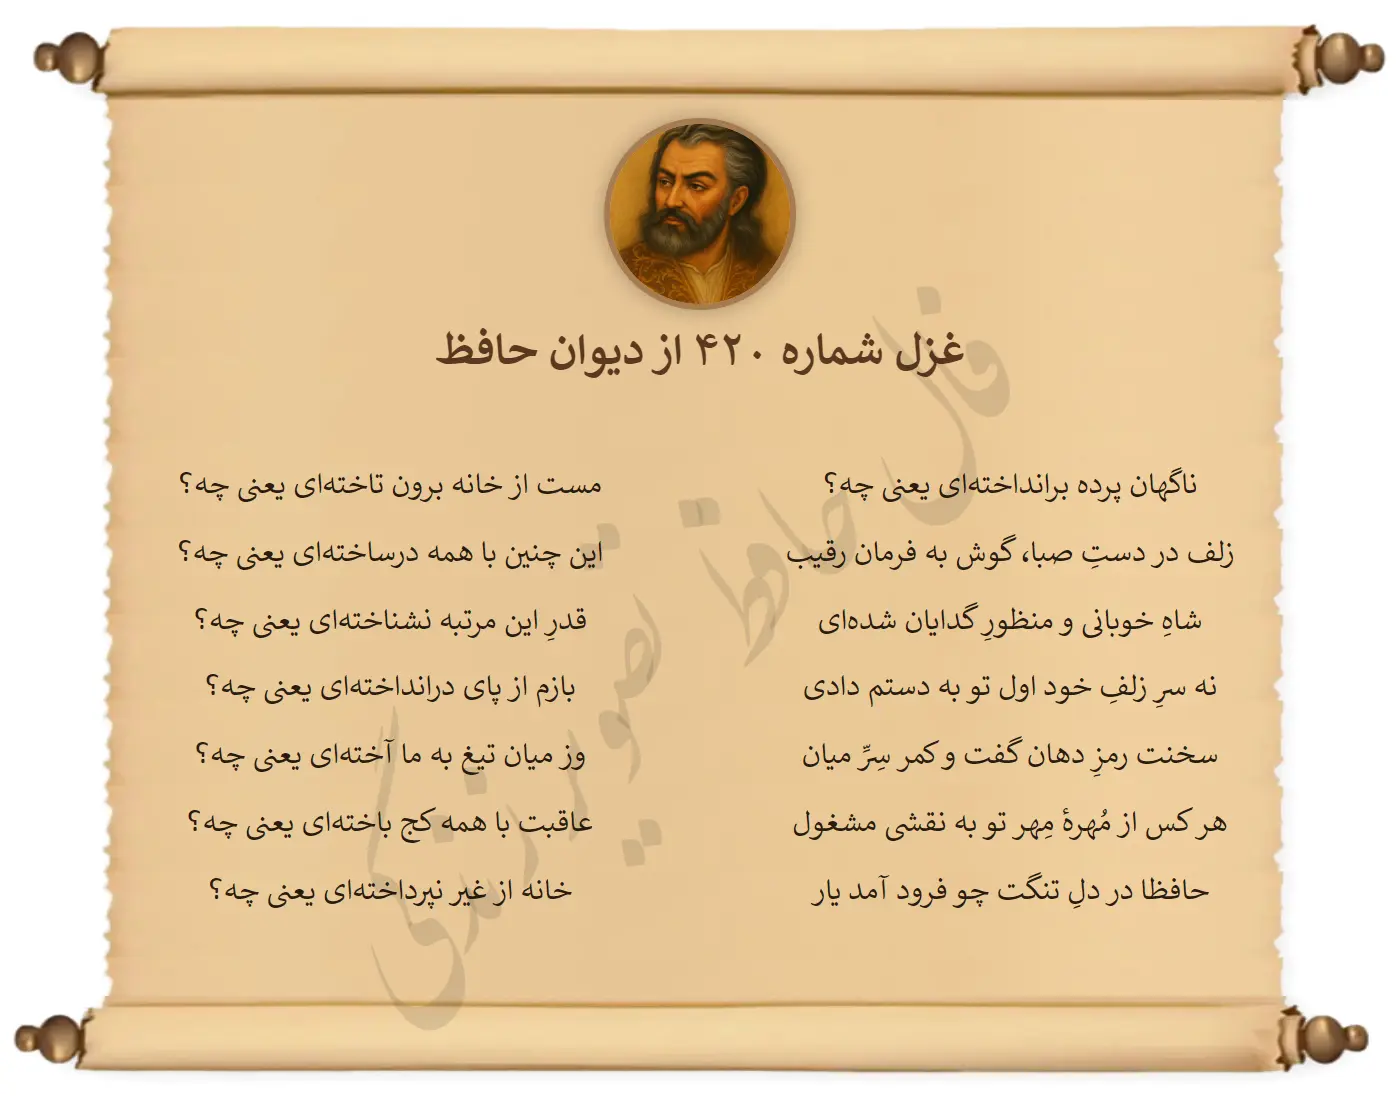 غزل شماره ۴۲۰ از دیوان حافظ
ناگهان پرده برانداخته‌ای یعنی چه؟ مست از خانه برون تاخته‌ای یعنی چه؟
زلف در دستِ صبا، گوش به فرمان رقیب این چنین با همه درساخته‌ای یعنی چه؟
شاهِ خوبانی و منظورِ گدایان شده‌ای قدرِ این مرتبه نشناخته‌ای یعنی چه؟
نه سرِ زلفِ خود اول تو به دستم دادی بازم از پای درانداخته‌ای یعنی چه؟
سخنت رمزِ دهان گفت و کمر سِرِّ میان وز میان تیغ به ما آخته‌ای یعنی چه؟
هر کس از مُهرهٔ مِهر تو به نقشی مشغول عاقبت با همه کج باخته‌ای یعنی چه؟
حافظا در دلِ تنگت چو فرود آمد یار خانه از غیر نپرداخته‌ای یعنی چه؟
فال حافظ تصویر زندگی